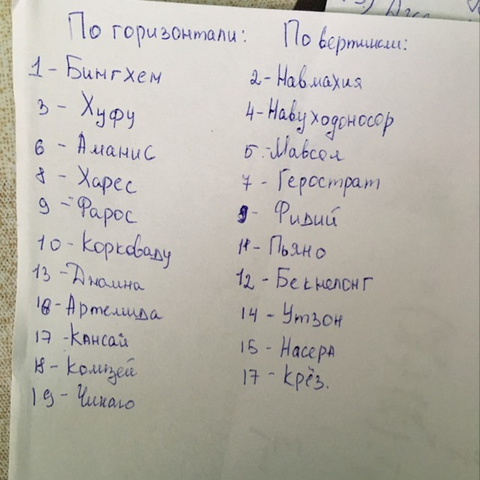 По горизонтали:
1 - Бингхем
3 - Хуфу
6 - Аманис
8 - Харес
9 - Фарос
10 - Корковаду
13 - Джамна
16 - Артемида
17 - Кансай
18 - Колизей
19 - Чикаго
По вертикали:
2 - Навмахия
4 - Навуходоносор
5 - Мавсол
7 - Герострат
9 - Фидий
11 - Пьяно
12 - Бекнелонг
14 - Утзон
15 - Насера
17 - Крёз.